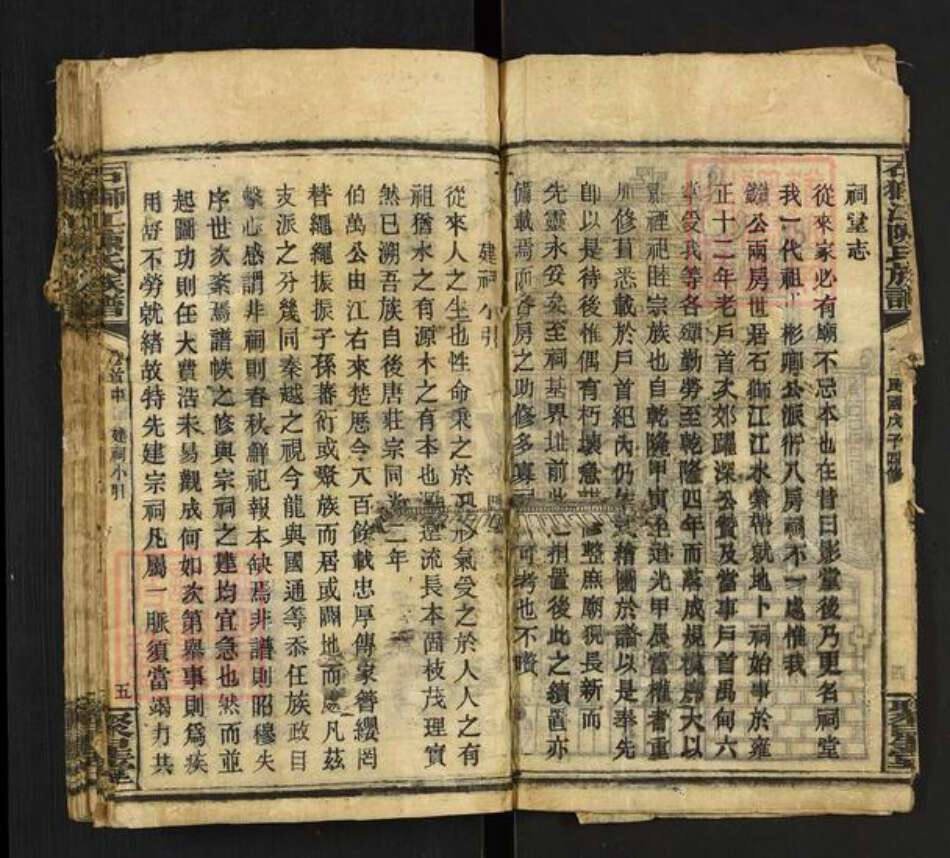 祠堂志
從來家必有廟不忘本也在昔曰影堂後乃更名祠堂
我一代祖 彬卿公派衍八房祠不一處惟我
公兩房世居石獅江江水縈帶就地卜祠始事於雍
正十二年老戶首次郊躍深公贊及當事戶首禹甸六
享受我等各殫勤勞至乾隆四年而落成規模廣大以
禋祀睦宗族也自乾隆甲寅至道光甲辰當權者重
加修葺悉載於戶首紀內仍 繪圖於譜以是奉先
即以是待後惟偶有朽壞急 修整庶廟貌長新而
先靈永妥矣至祠基界址前此 捐置後此之續置亦
備載焉而各房之助修多寡 可考也不贅
建祠小引
從來人之生也性命秉之於天形氣受之於人人之有
祖猶水之有源木之有本也源遠流長本固枝茂理實
然已溯吾族自後唐莊宗同光二年
伯萬公由江右來楚歷今八百餘載忠厚傳家簪纓罔
替繩繩振振子孫蕃衍或聚族而居或闢地而處凡茲
支派之分幾同秦越之視今龍與國通等忝任族政目
擊心感謂非祠則春秋鮮祀報本缺焉非譜則昭穆失
序世次紊焉譜帙之修與宗祠之建均宜急也然而並
起圖功則任大費浩未易觀成何如次第舉事則為疾
用舒不勞就緒故特先建宗祠凡屬一脈須當竭力共
石獅江陳氏族譜
卷首中
建祠小引
五
聚星堂
石獅江陳氏族譜
民國戊子四修
四
聚星堂